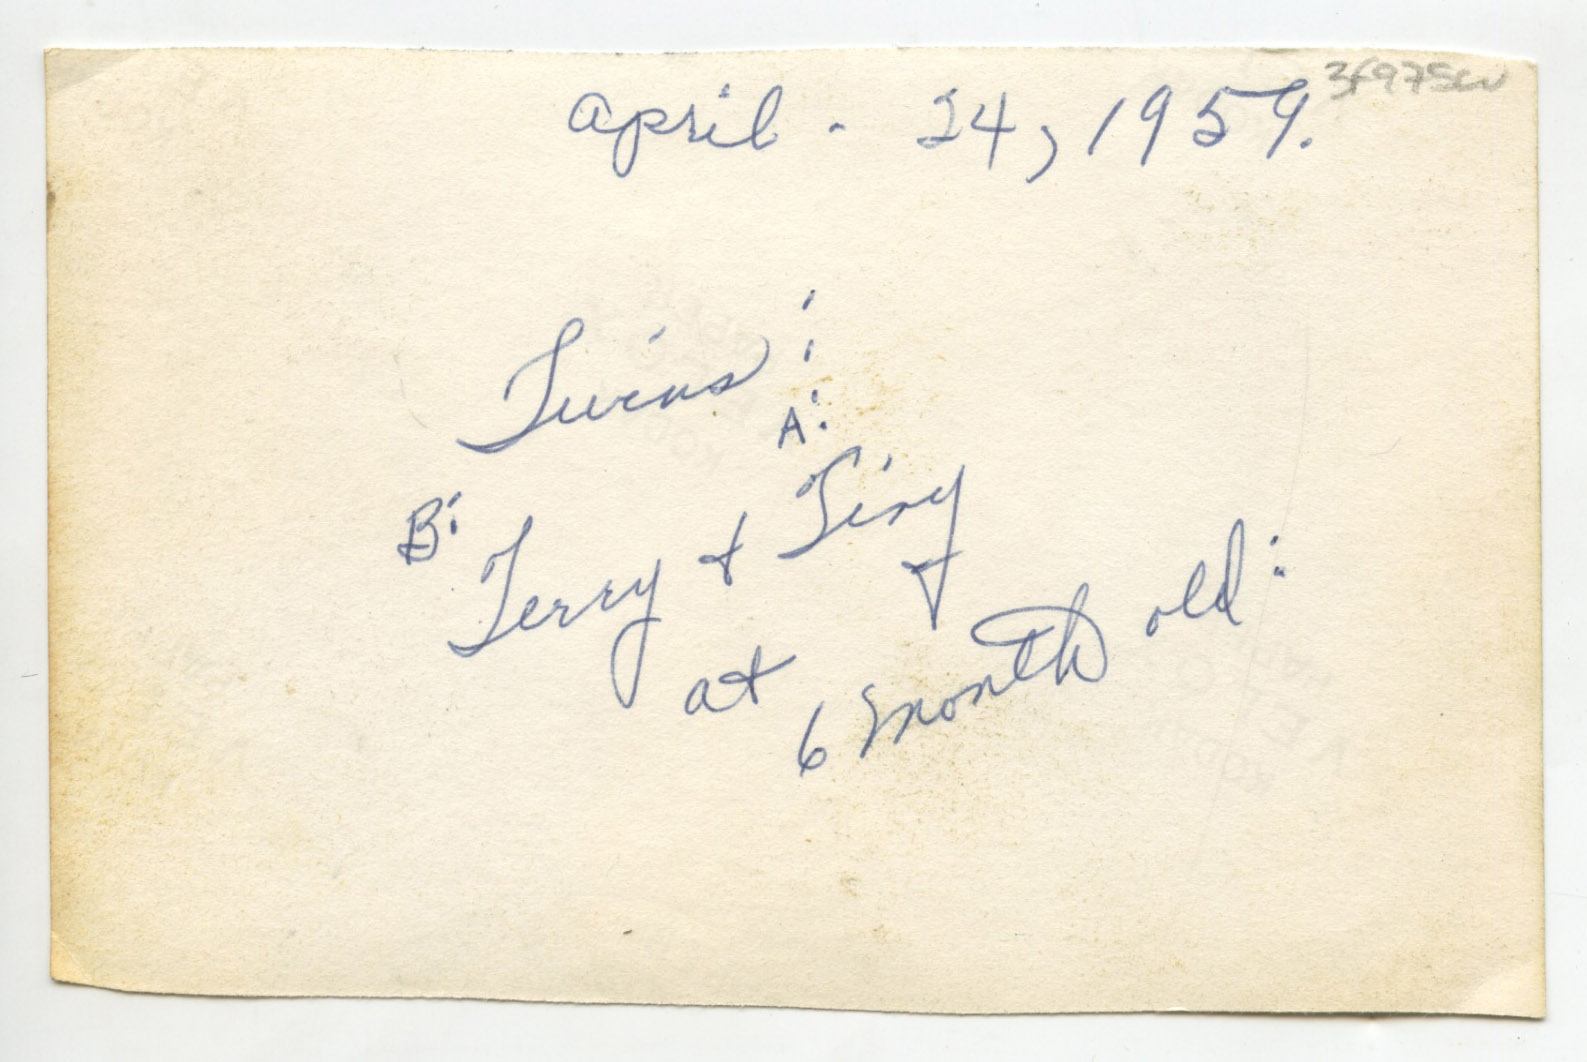 April - 24, 1959.
Twins:
A:
B: Terry & Tiny
at 6 month old: